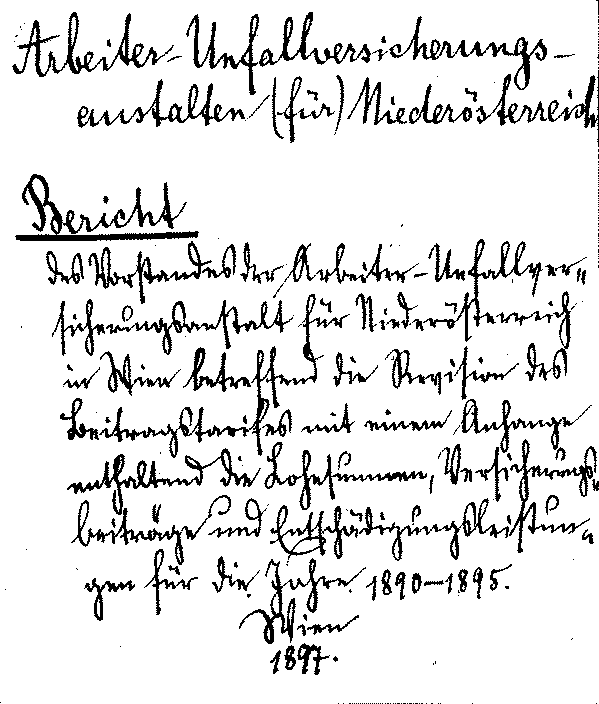 Arbeiter-Unfallversicherungs-
anstalten (für) Niederösterreich
Bericht
des Vorstandes der Arbeiter-Unfallver-
sicherungsanstalt für Niederösterreich
in Wien betreffend die Revision des
Beitragstarifes mit einem Anhange
enthaltend die Lohnsummen, Versicherungs-
beiträge und Entschädigungsleistun-
gen für die Jahre 1890-1895.
Wien
1897.